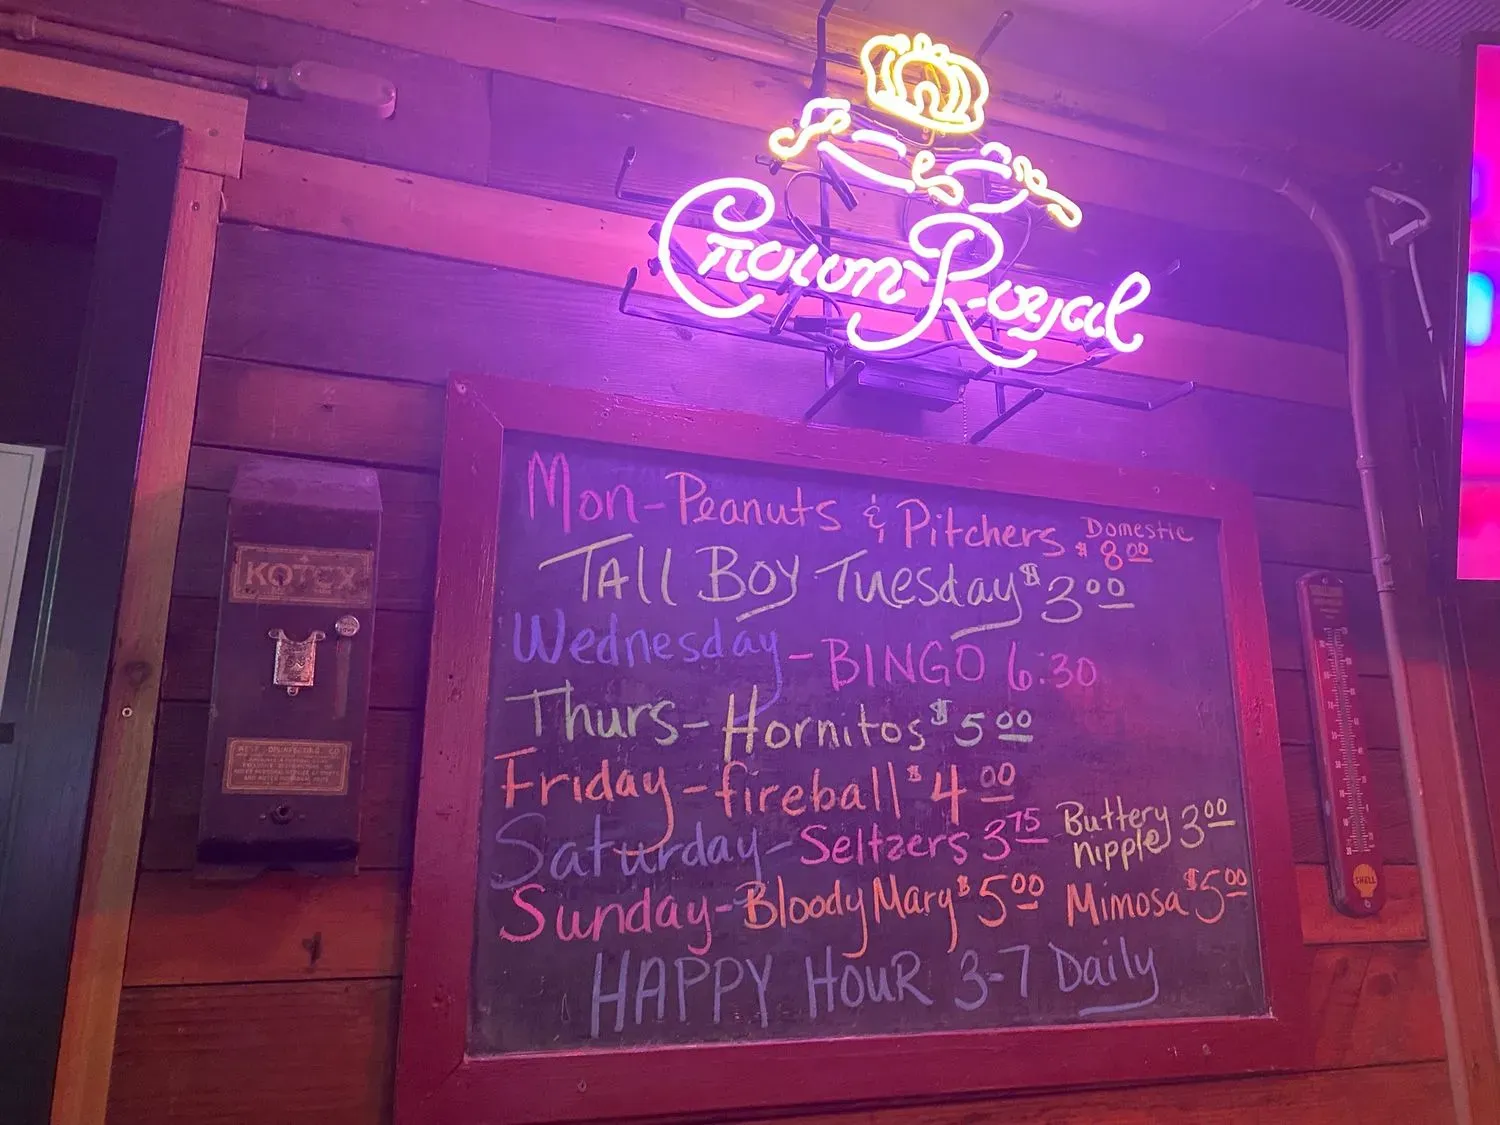 Crown Royal
Mon-Peanuts & Pitchers Domestic $8.00
TAll BOY Tuesday $3.00
Wednesday - BINGO 6:30
Thurs- Hornitos $5.00
Friday - fireball $4.00
Saturday - Seltzers 3.75 Buttery nipple 3.00
Sunday - Bloody Mary $5.00 Mimosa $5.00
HAPPY HOUR 3-7 Daily
KOTEX
WEST DISINFECTING CO
SHELL